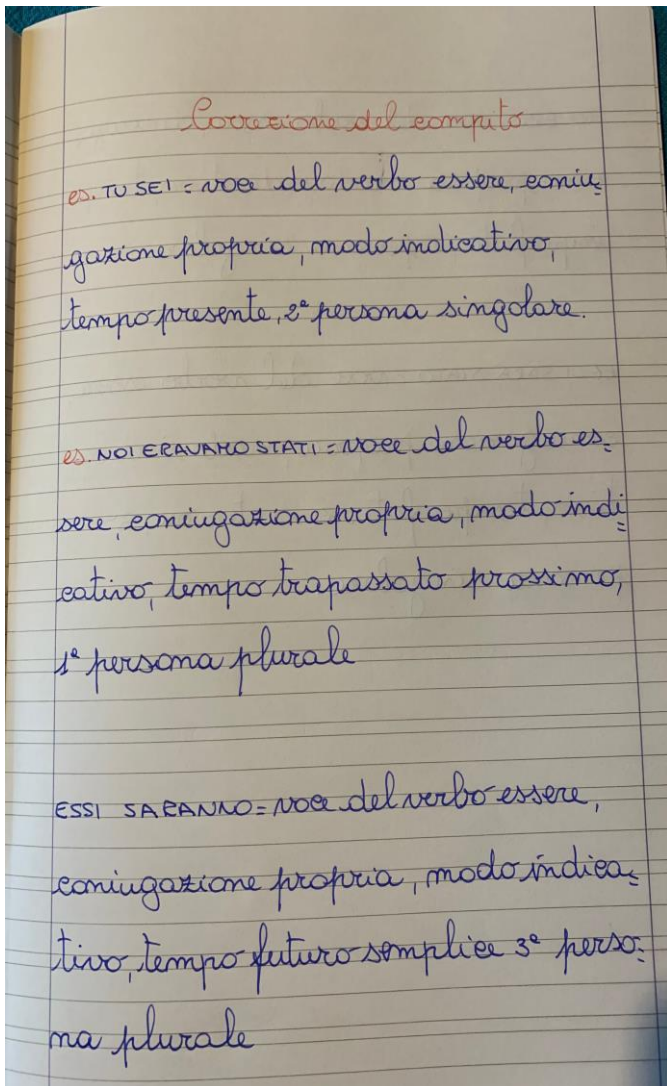 Correzione del compito
es. TU SEI = voce del verbo essere, coniu=
gazione propria, modo indicativo,
tempo presente, 2ª persona singolare.
es. NOI ERAVAMO STATI = voce del verbo es=
sere, coniugazione propria, modo indi=
cativo, tempo trapassato prossimo,
1ª persona plurale
ESSI SARANNO = voce del verbo essere,
coniugazione propria, modo indica=
tivo, tempo futuro semplice 3ª perso=
na plurale